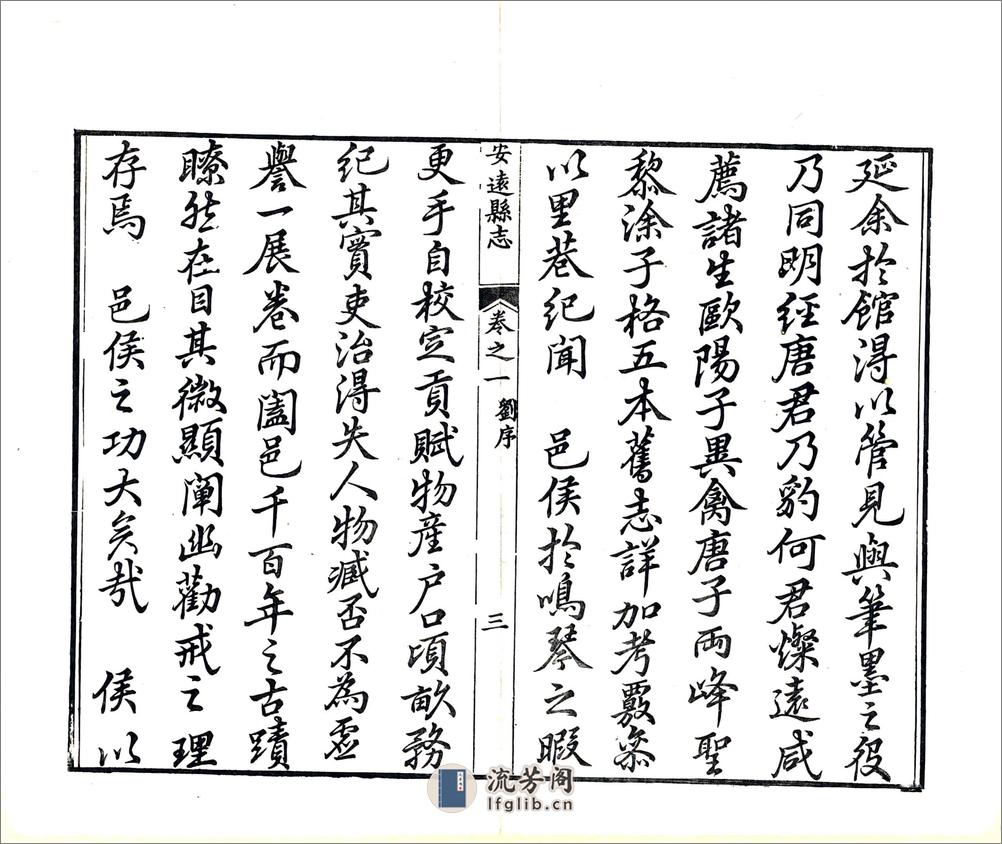 延余於館得以管見與筆墨之役
乃同明經唐君乃豹何君燦遠咸
薦諸生歐陽子異禽唐子兩峰聖
黎涂子格五本舊志詳加考覈叅
以里巷紀聞　邑侯於鳴琴之暇
安遠縣志
卷之一　劉序
三
更手自校定貢賦物産户口頃畝務
紀其實吏治得失人物臧否不為虛
譽一展卷而闔邑千百年之古蹟
瞭然在目其微顯闡幽勸戒之理
存焉　邑侯之功大矣哉　侯以
流芳阁
lfglib.cn